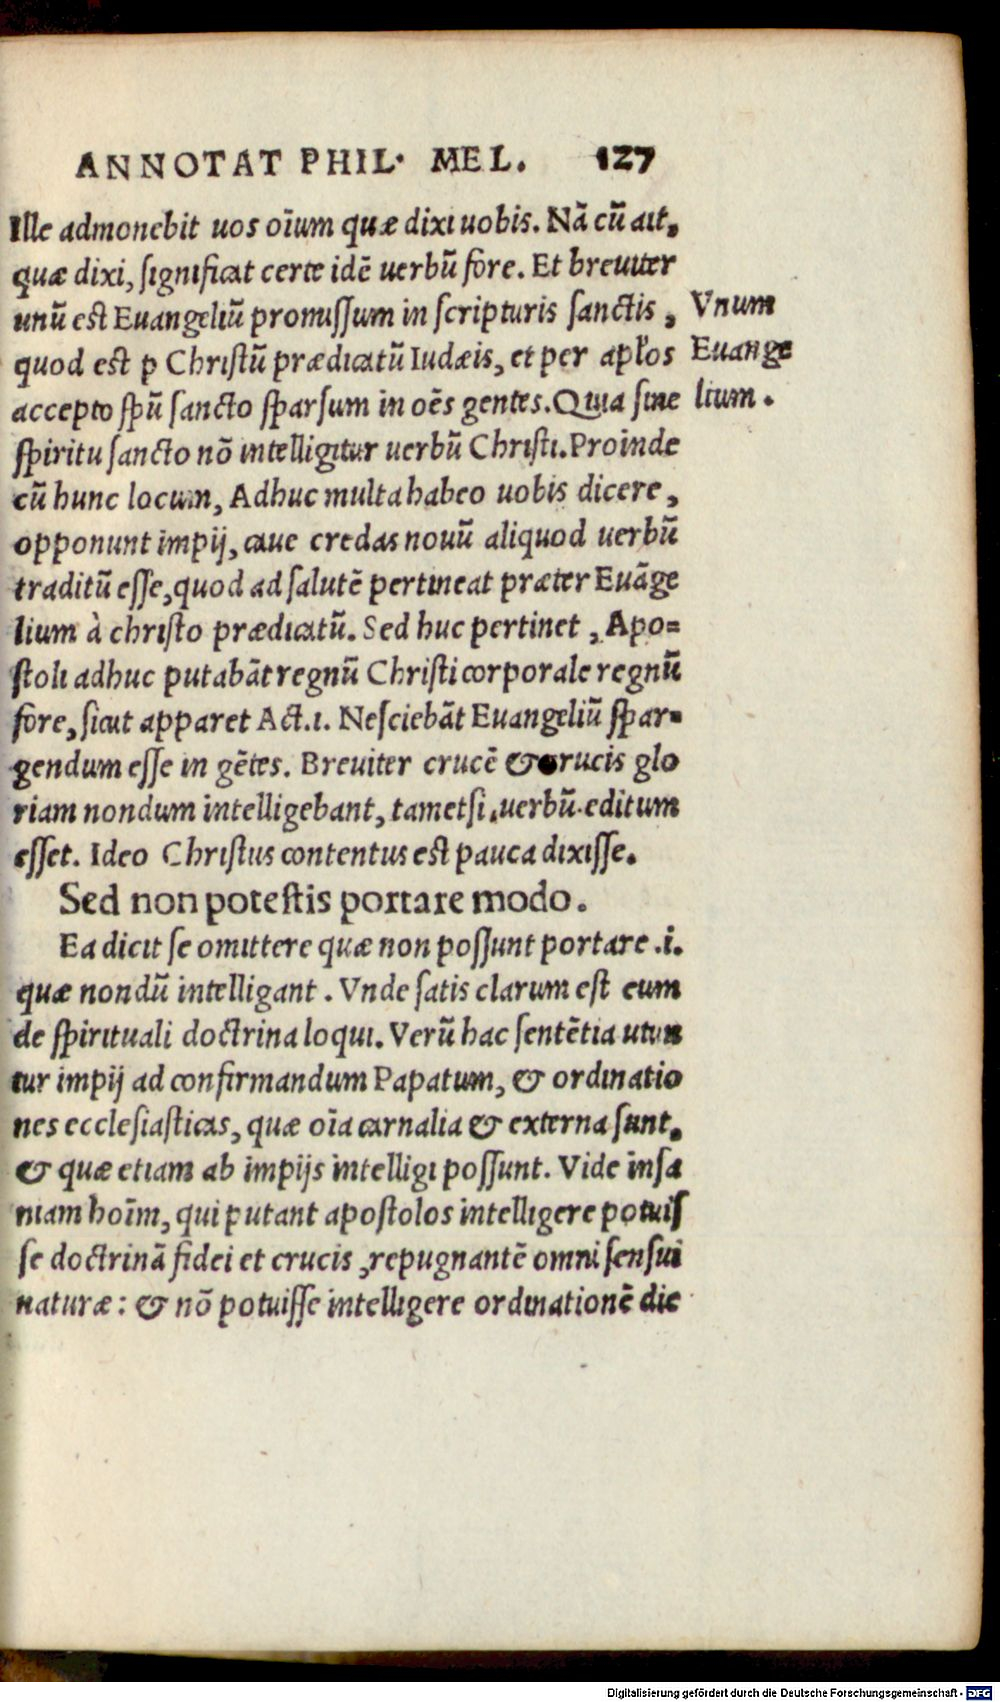 ANNOTAT PHIL· MEL. 127
Ille admonebit uos oīum quæ dixi uobis. Nā cū ait,
quæ dixi, significat certe idē uerbū fore. Et breuiter
unū est Euangeliū promissum in scripturis sanctis,
Vnum
quod est p Christū prædicatū Iudæis, et per apłos
Euange
accepto spū sancto sparsum in oēs gentes. Quia sine
lium.
spiritu sancto nō intelligitur uerbū Christi. Proinde
cū hunc locum, Adhuc multa habeo uobis dicere,
opponunt impij, caue credas nouū aliquod uerbū
traditū esse, quod ad salutē pertineat præter Euāge
lium à christo prædicatū. Sed huc pertinet, Apo=
stoli adhuc putabāt regnū Christi corporale regnū
fore, sicut apparet Act.1. Nesciebāt Euangeliū spar-
gendum esse in gētes. Breuiter crucē & crucis glo
riam nondum intelligebant, tametsi uerbū editum
esset. Ideo Christus contentus est pauca dixisse.
Sed non potestis portare modo.
Ea dicit se omittere quæ non possunt portare .i.
quæ nondū intelligant. Vnde satis clarum est eum
de spirituali doctrina loqui. Verū hac sentētia utun
tur impij ad confirmandum Papatum, & ordinatio
nes ecclesiasticas, quæ oīa carnalia & externa sunt,
& quæ etiam ab impijs intelligi possunt. Vide insa
niam hoīm, qui putant apostolos intelligere potuis
se doctrinā fidei et crucis, repugnantē omni sensui
naturæ: & nō potuisse intelligere ordinationē die
Digitalisierung gefördert durch die Deutsche Forschungsgemeinschaft - DFG